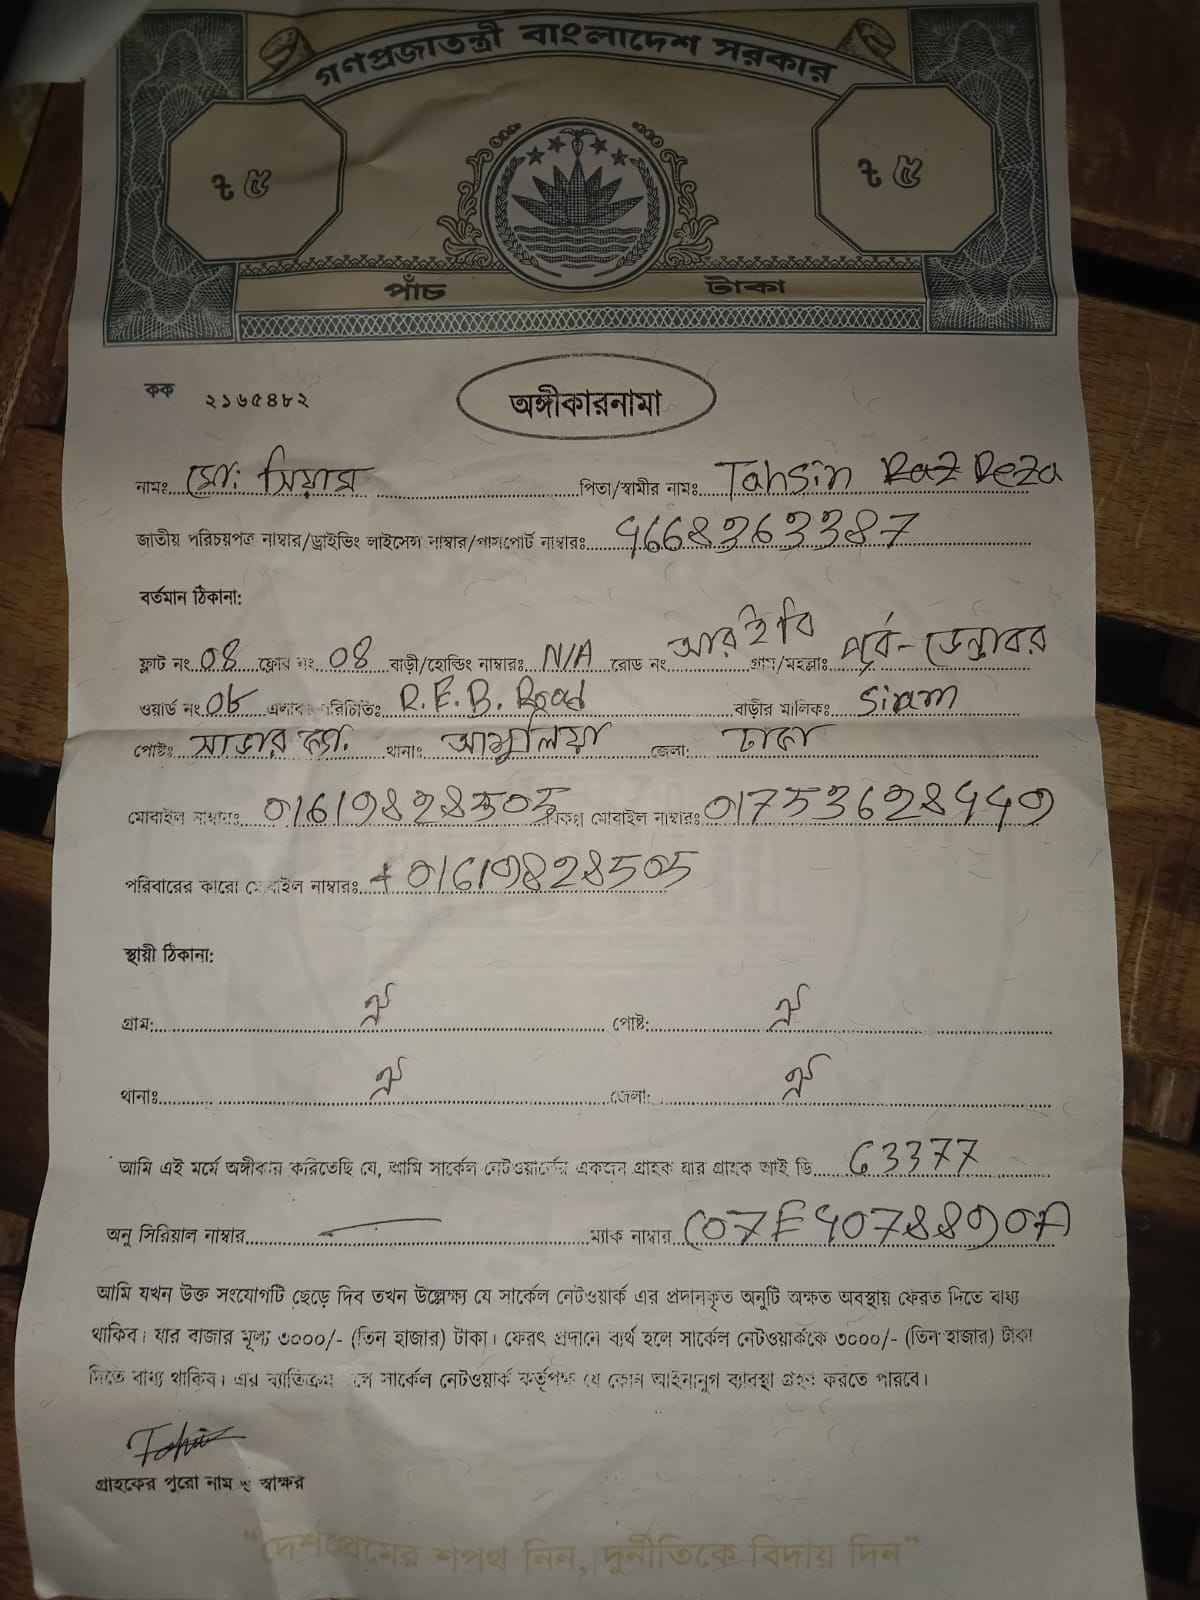 গণপ্রজাতন্ত্রী বাংলাদেশ সরকার
৳ ৫ ৳ ৫
পাঁচ টাকা
কক ২১৬৫৪৮২
অঙ্গীকারনামা
নামঃ মো: সিয়াম পিতা/স্বামীর নামঃ Tahsin Raz Reza
জাতীয় পরিচয়পত্র নাম্বার/ড্রাইভিং লাইসেন্স নাম্বার/পাসপোর্ট নাম্বারঃ 4668363387
বর্তমান ঠিকানা:
ফ্লাট নং 08 ফ্লোর নং 08 বাড়ী/হোল্ডিং নাম্বারঃ N/A রোড নং আরইবি গ্রাম/মহল্লাঃ পূর্ব-ডেন্ডাবর
ওয়ার্ড নং 08 এলাকা পরিচিতিঃ R.E.B. Road বাড়ীর মালিকঃ Siam
পোষ্টঃ সাভার ক্যা. থানাঃ আশুলিয়া জেলা: ঢাকা
মোবাইল নাম্বারঃ 01619828505 বিকল্প মোবাইল নাম্বারঃ 01753628449
পরিবারের কারো মোবাইল নাম্বারঃ 01619828505
স্থায়ী ঠিকানা:
গ্রাম: ঐ পোষ্ট: ঐ
থানাঃ ঐ জেলা: ঐ
আমি এই মর্মে অঙ্গীকার করিতেছি যে, আমি সার্কেল নেটওয়ার্কের একজন গ্রাহক যার গ্রাহক আই ডি 63377
অনু সিরিয়াল নাম্বার ম্যাক নাম্বার C07E4078890A
আমি যখন উক্ত সংযোগটি ছেড়ে দিব তখন উল্লেক্ষ্য যে সার্কেল নেটওয়ার্ক এর প্রদানকৃত অনুটি অক্ষত অবস্থায় ফেরত দিতে বাধ্য
থাকিব। যার বাজার মূল্য ৩০০০/- (তিন হাজার) টাকা। ফেরৎ প্রদানে ব্যর্থ হলে সার্কেল নেটওয়ার্ককে ৩০০০/- (তিন হাজার) টাকা
দিতে বাধ্য থাকিব। এর ব্যতিক্রম হলে সার্কেল নেটওয়ার্ক কর্তৃপক্ষ যে কোন আইনানুগ ব্যবস্থা গ্রহণ করতে পারবে।
গ্রাহকের পুরো নাম ও স্বাক্ষর
“দেশপ্রেমের শপথ নিন, দুর্নীতিকে বিদায় দিন”